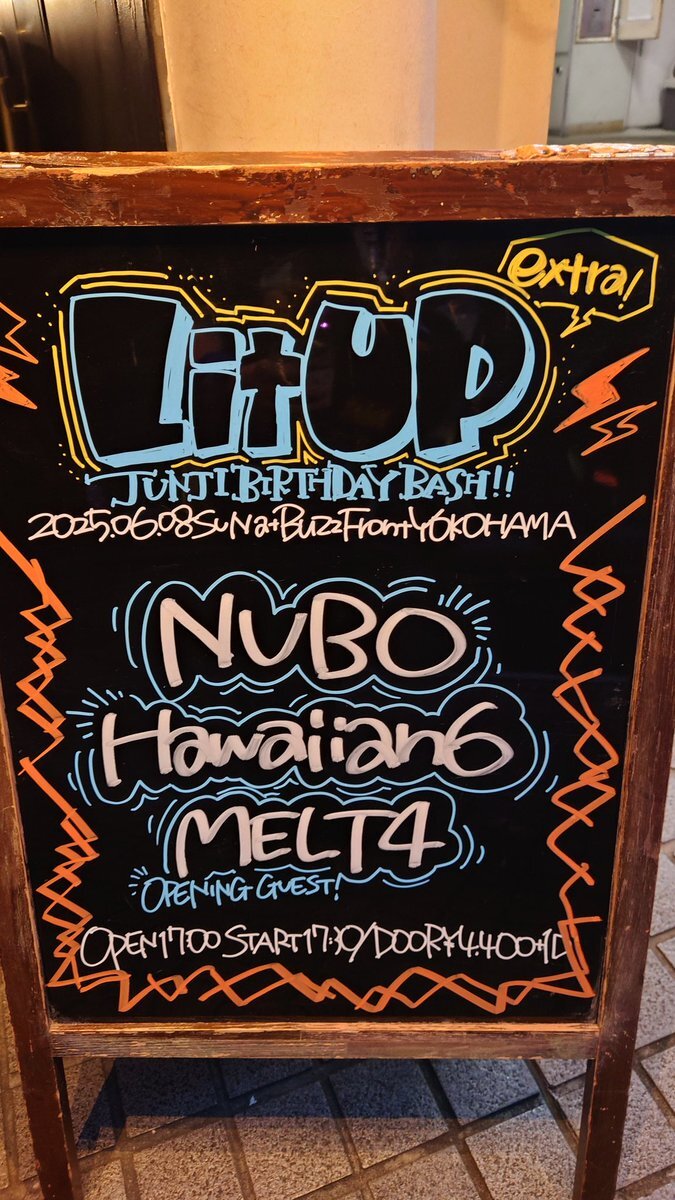 extra!
LitUP
JUNJI BIRTHDAY BASH!!
2025.06.08 SuN at BuzzFront YOKOHAMA
NUBO
Hawaiian6
MELT4
OPENING GUEST!
OPEN 17:00 START 17:30/DOOR ¥4.400+1D